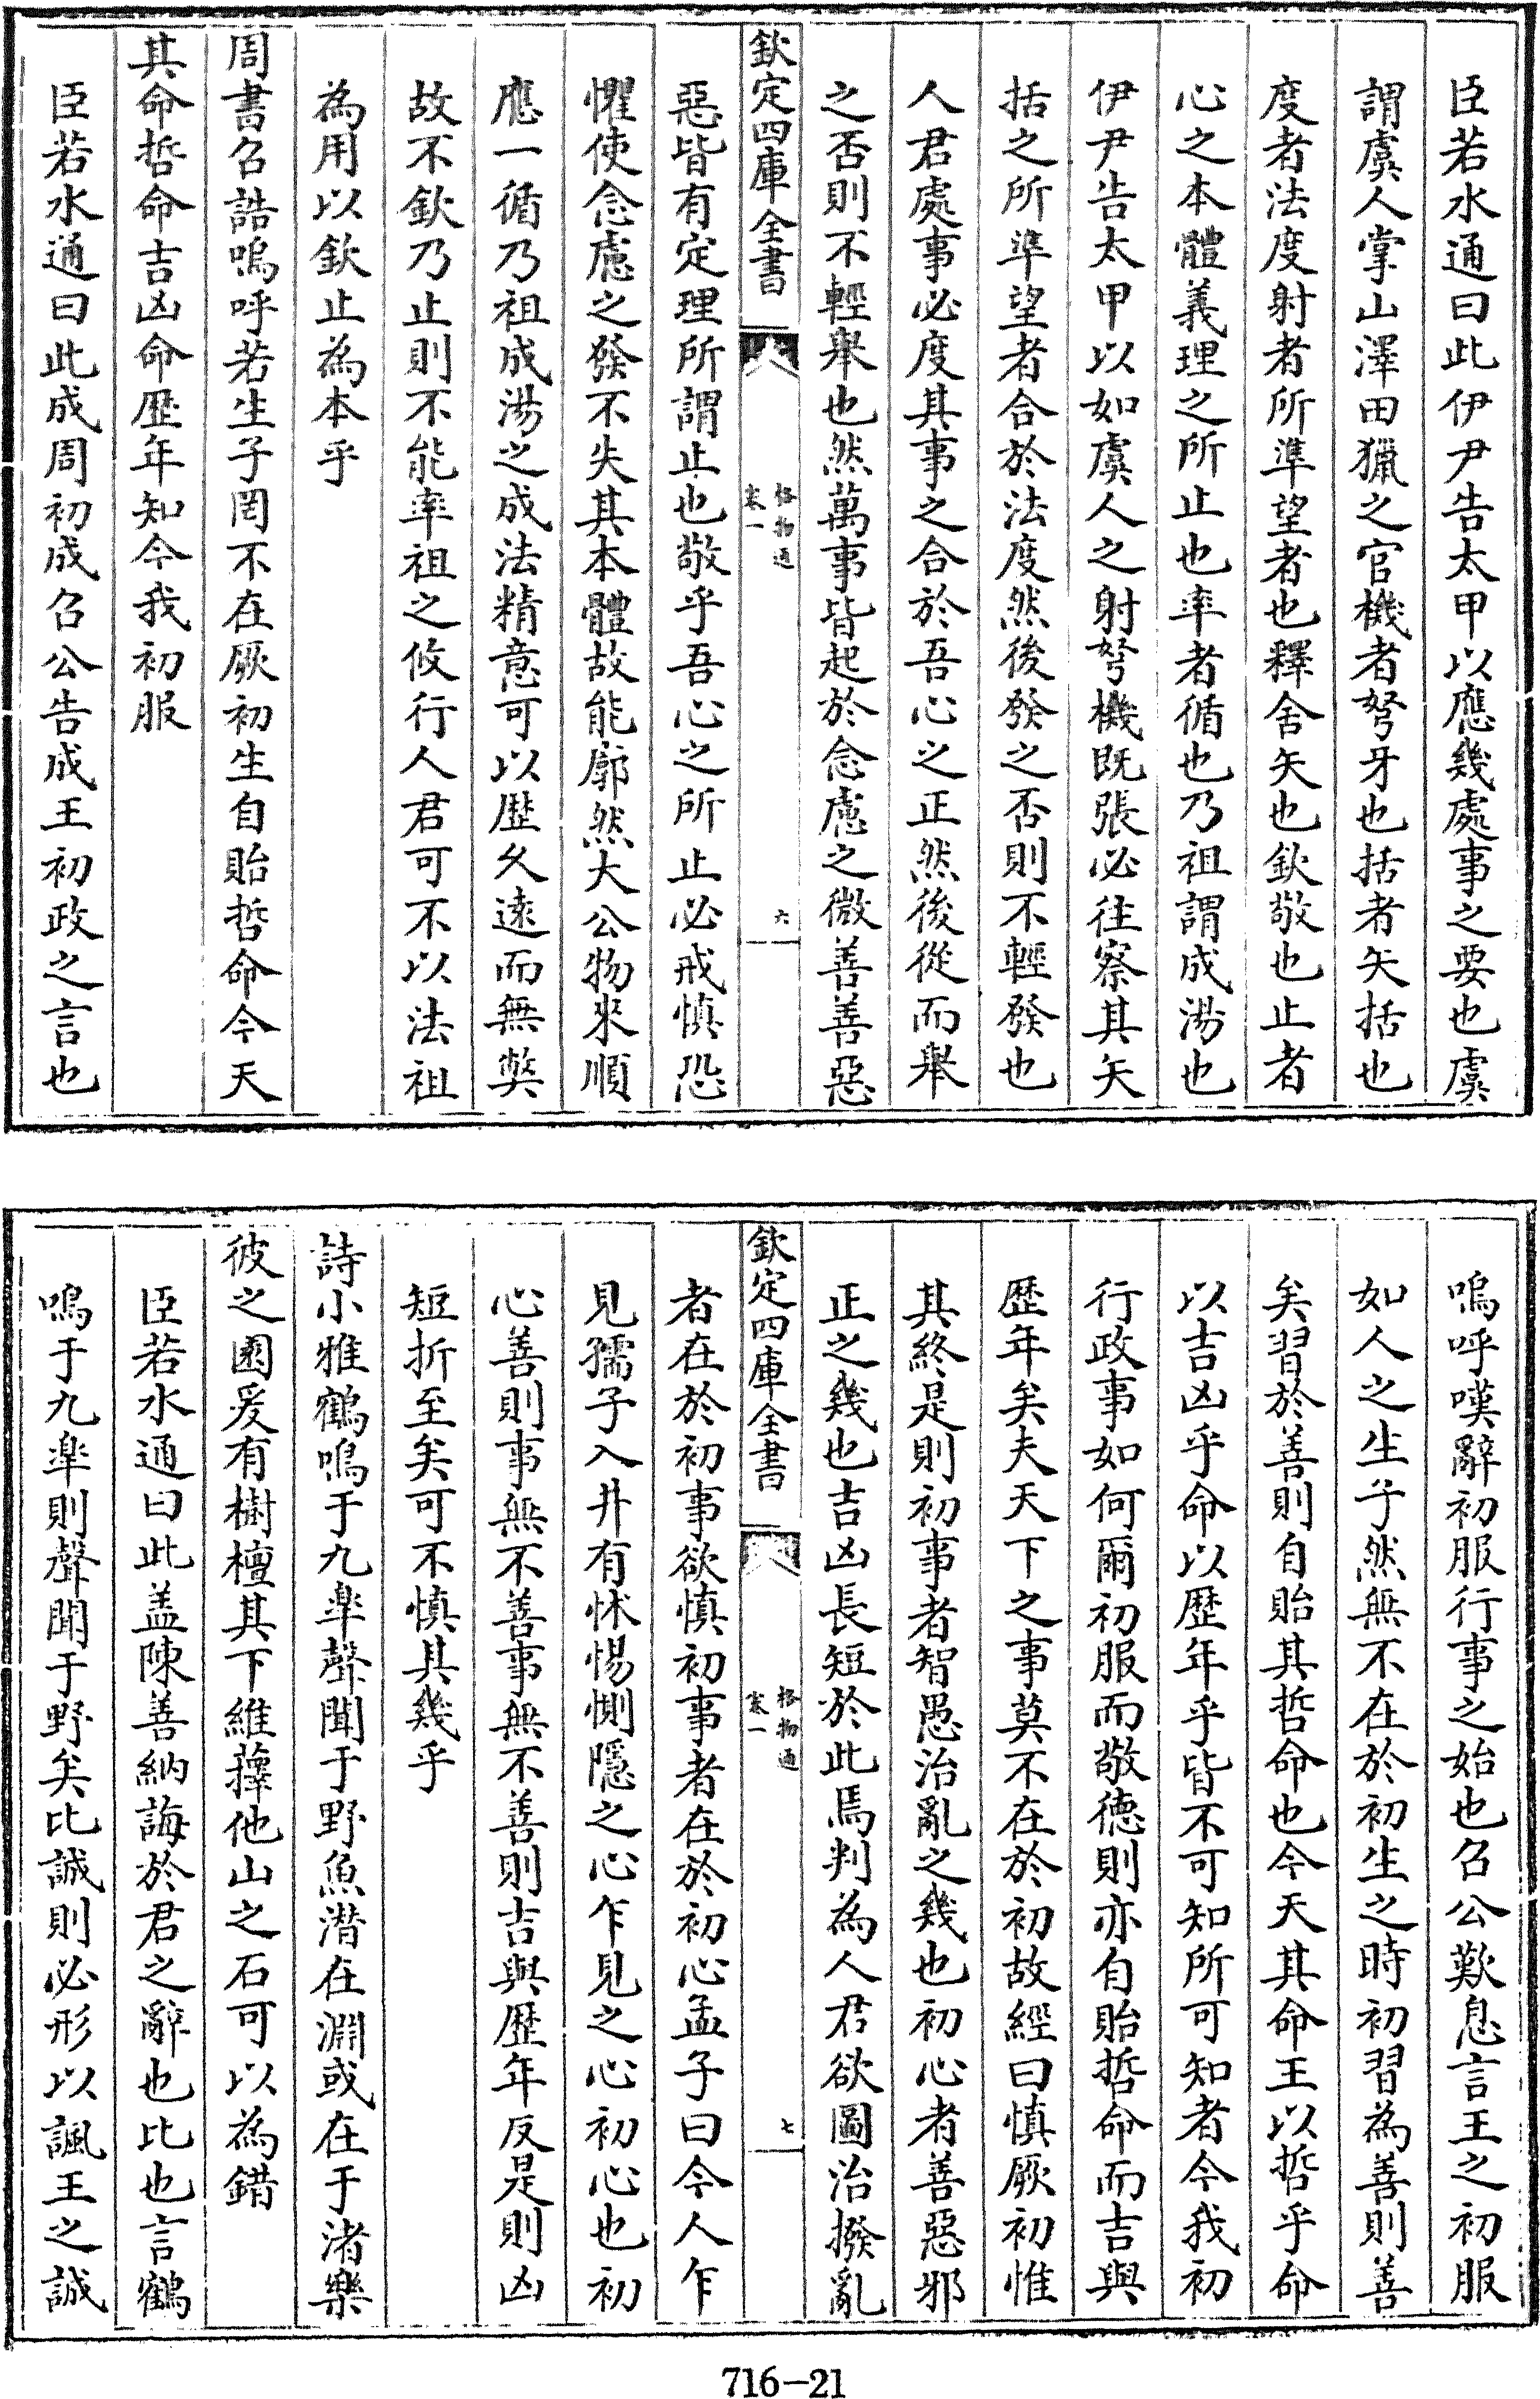 臣若水通曰此伊尹告太甲以應幾處事之要也虞
謂虞人掌山澤田獵之官機者弩牙也括者矢括也
度者法度射者所準望者也釋舍矢也欽敬也止者
心之本體義理之所止也率者循也乃祖謂成湯也
伊尹告太甲以如虞人之射弩機既張必往察其矢
括之所準望者合於法度然後發之否則不輕發也
人君處事必度其事之合於吾心之正然後從而舉
之否則不輕舉也然萬事皆起於念慮之微善善惡
欽定四庫全書
格物通
卷一
六
惡皆有定理所謂止也敬乎吾心之所止必戒慎恐
懼使念慮之發不失其本體故能廓然大公物來順
應一循乃祖成湯之成法精意可以歴久逺而無弊
故不欽乃止則不能率祖之攸行人君可不以法祖
為用以欽止為本乎
周書召誥嗚呼若生子罔不在厥初生自貽哲命今天
其命哲命吉凶命歴年知今我初服
臣若水通曰此成周初成召公告成王初政之言也
嗚呼嘆辭初服行事之始也召公歎息言王之初服
如人之生子然無不在於初生之時初習為善則善
矣習於善則自貽其哲命也今天其命王以哲乎命
以吉凶乎命以歴年乎皆不可知所可知者今我初
行政事如何爾初服而敬德則亦自貽哲命而吉與
歴年矣夫天下之事莫不在於初故經曰慎厥初惟
其終是則初事者智愚治亂之幾也初心者善惡邪
正之幾也吉凶長短於此焉判為人君欲圖治撥亂
欽定四庫全書
格物通
卷一
七
者在於初事欲慎初事者在於初心孟子曰今人乍
見孺子入井有怵惕惻隱之心乍見之心初心也初
心善則事無不善事無不善則吉與歴年反是則凶
短折至矣可不慎其幾乎
詩小雅鶴鳴于九臯聲聞于野魚潜在淵或在于渚樂
彼之園爰有樹檀其下維蘀他山之石可以為錯
臣若水通曰此盖陳善納誨於君之辭也比也言鶴
鳴于九臯則聲聞于野矣比誠則必形以諷王之誠
716-21